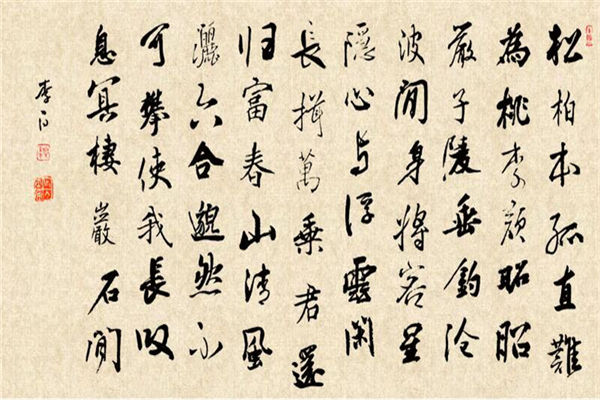 松柏本孤直難
為桃李顔昭昭
嚴子陵垂釣沧
波間身將客星
隱心与浮雲閑
長揖萬乗君還
归富春山清風
灑六合邈然不
可攀使我長叹
息冥棲巖石間
李白